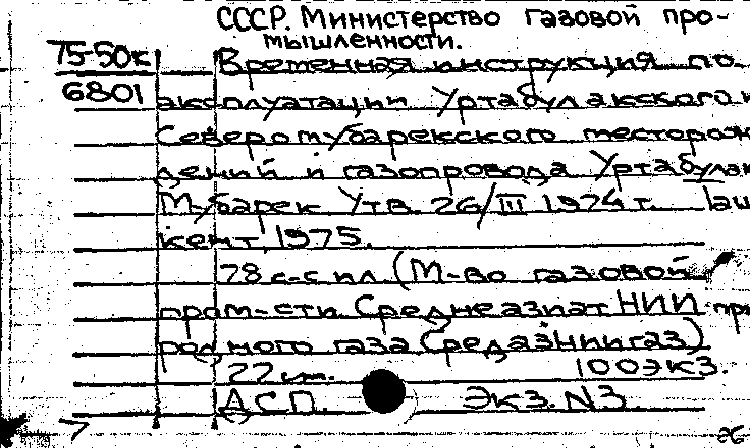 СССР. Министерство газовой про-
мышленности.
75-50к Временная инструкция по
6801 эксплуатации Уртабулакского и
Северомубарекского месторож
дений и газопровода Уртабулак
Мубарек Утв. 26/III 1974 г. Таш
кент 1975.
78 с. с ил. (М-во газовой
пром-сти Среднеазиат НИИ при
родного газа (редазНИИгаз)
22 см. 100экз.
ДСП. Экз. N3